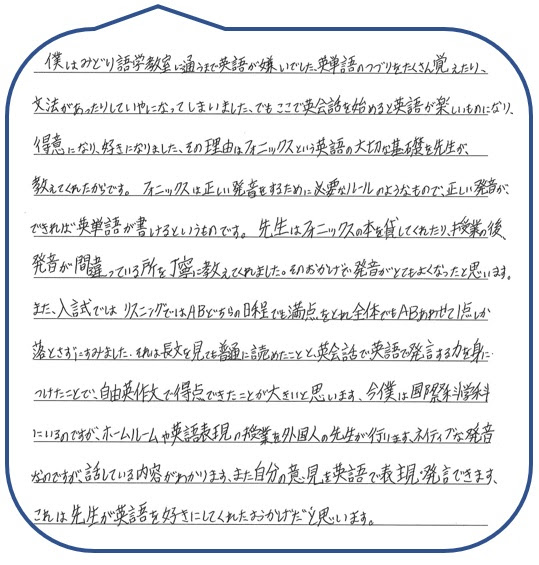 僕はみどり語学教室に通うまで英語が嫌いでした。英単語のつづりをたくさん覚えたり、
文法があったりしていやになってしまいました。でもここで英会話を始めると英語が楽しいものになり、
得意になり、好きになりました。その理由はフォニックスという英語の大切な基礎を先生が、
教えてくれたからです。 フォニックスは正しい発音をするために必要なルールのようなもので、正しい発音が、
できれば英単語が書けるというものです。 先生はフォニックスの本を貸してくれたり、授業の後、
発音が間違っている所を丁寧に教えてくれました。そのおかげで発音がとてもよくなったと思います。
また、入試では リスニングではABどちらの日程でも満点をとれ全体でもABあわせて1点しか
落とさずにすみました。それは長文を見ても普通に読めたことと、英会話で英語で発言する力を身に
つけたことで、自由英作文で得点できたことが大きいと思います。今僕は国際系科学科
にいるのですが、ホームルームや英語表現の授業を外国人の先生が行います。ネイティブな発音
なのですが、話している内容がわかります。また自分の意見を英語で表現・発言できます。
これは先生が英語を好きにしてくれたおかげだと思います。